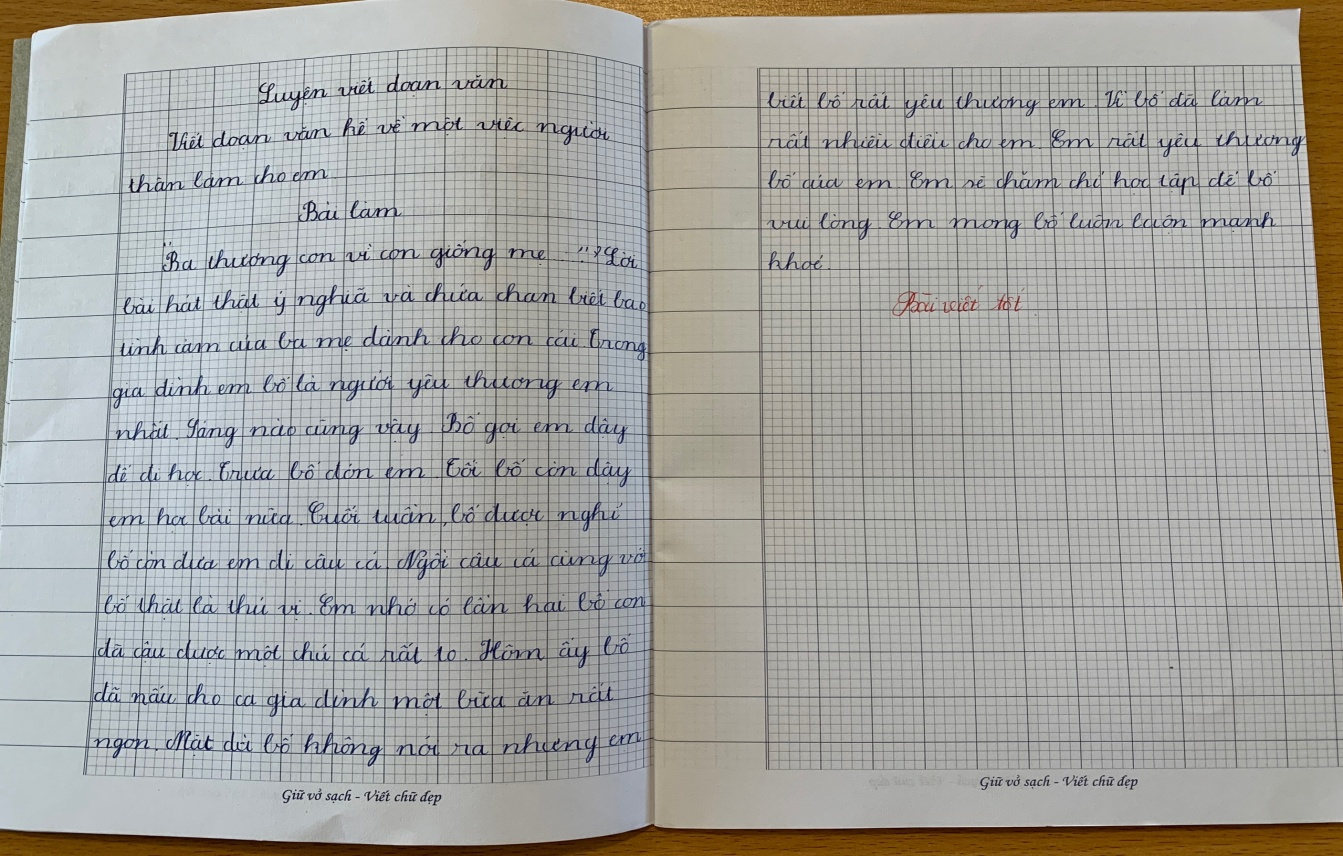 Luyện viết đoạn văn
Viết đoạn văn kể về một việc người
thân làm cho em
Bài làm
"Ba thương con vì con giống mẹ ..." Lời
bài hát thật ý nghĩa và chứa chan biết bao
tình cảm của ba mẹ dành cho con cái. Trong
gia đình em bố là người yêu thương em
nhất. Sáng nào cũng vậy. Bố gọi em dậy
để đi học. Trưa bố đón em. Tối bố còn dạy
em học bài nữa. Cuối tuần, bố được nghỉ
bố còn đưa em đi câu cá. Ngồi câu cá cùng với
bố thật là thú vị. Em nhớ có lần hai bố con
đã câu được một chú cá rất to. Hôm ấy bố
đã nấu cho cả gia đình một bữa ăn rất
ngon. Mặt dù bố không nói ra nhưng em
biết bố rất yêu thương em. Vì bố đã làm
rất nhiều điều cho em. Em rất yêu thương
bố của em. Em sẽ chăm chỉ học tập để bố
vui lòng. Em mong bố luôn luôn mạnh
khoẻ.
Bài viết tốt
Giữ vở sạch - Viết chữ đẹp
Giữ vở sạch - Viết chữ đẹp